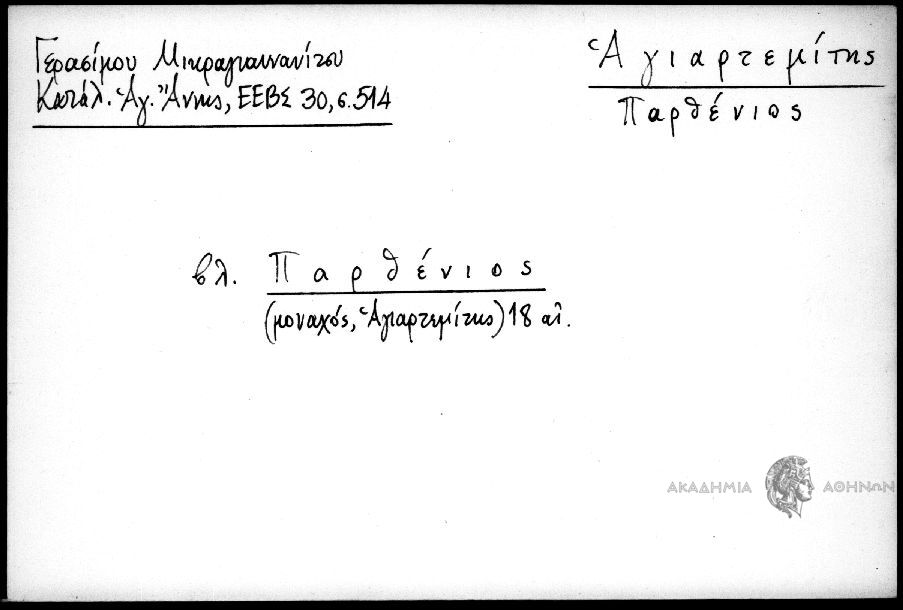 Γερασίμου Μικραγιαννανίτου
Κατάλ. Ἁγ. Ἄννης, ΕΕΒΣ 30, σ. 514
Ἁγιαρτεμίτης
Παρθένιος
βλ. Παρθένιος
(μοναχός, Ἁγιαρτεμίτης) 18 αἰ.
ΑΚΑΔΗΜΙΑ ΑΘΗΝΩΝ